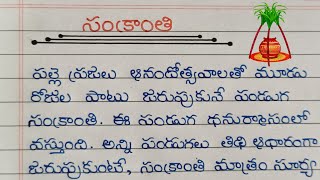 సంక్రాంతి
పల్లె ప్రజలు ఆనందోత్సవాలతో మూడు
రోజుల పాటు జరుపుకునే పండుగ
సంక్రాంతి. ఈ పండుగ ధనుర్మాసంలో
వస్తుంది. అన్ని పండుగలు తిథి ఆధారంగా
జరుపుకుంటే, సంక్రాంతి మాత్రం సూర్య